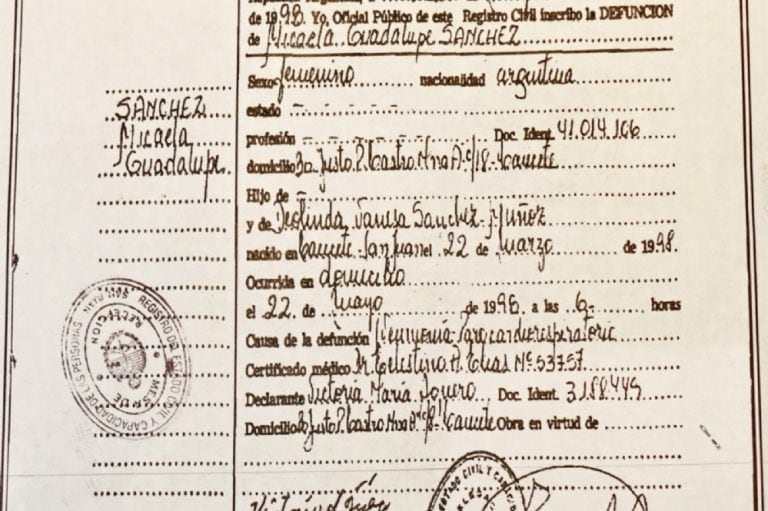 de 1998. Yo, Oficial Público de este Registro Civil inscribo la DEFUNCION
de Micaela Guadalupe SANCHEZ
SANCHEZ
Micaela
Guadalupe
Sexo femenino nacionalidad argentina
estado
profesión Doc. Ident. 41.014.166
domicilio Bo Justo P. Castro Mna A c/18- Caucete
Hijo de
y de Deolinda Vanesa Sanchez- Muñoz
nacido en Caucete- San Juan el 22 de marzo de 1998
Ocurrida en domicilio
el 22 de mayo de 1998 a las 6- horas
Causa de la defunción Neumonia- Paro cardiorespiratorio
Certificado médico Dr. Celestino A. Elias Nº 53757
Declarante Victoria María Doc. Ident. 3.188.445
Domicilio Bo Justo P. Castro Mna A c/18- Caucete Obra en virtud de
REGISTRO DE ESTADO CIVIL Y CAPACIDAD DE LAS PERSONAS SAN JUAN
RECEPCION
ESTADO CIVIL Y